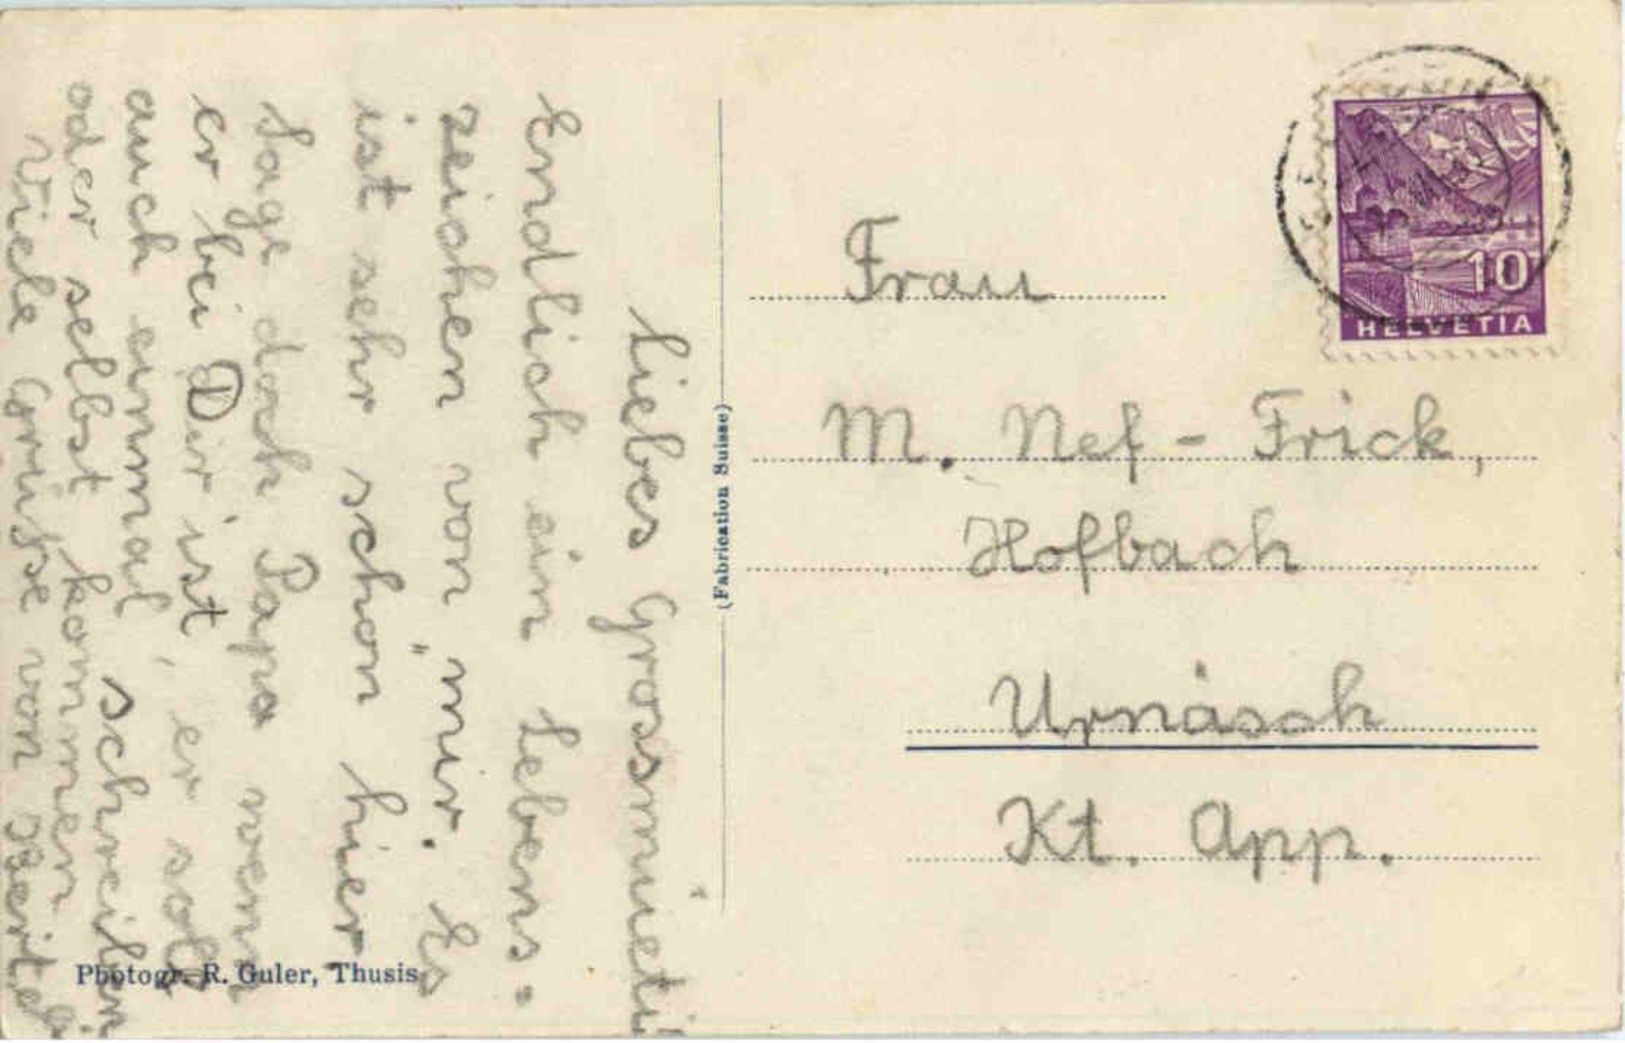 Liebes Grossmueti!
Endlich ein Lebens=
zeichen von „mir. Es
ist sehr schon hier
Sage doch Papa wenn
er bei Dir ist, er soll
auch einmal schreiben
oder selbst kommen
Viele Grüsse von
Photogr. R. Guler, Thusis
(Fabrication Suisse)
10
HELVETIA
Frau
M. Nef-Frick,
Hofbach
Urnäsch
Kt. App.